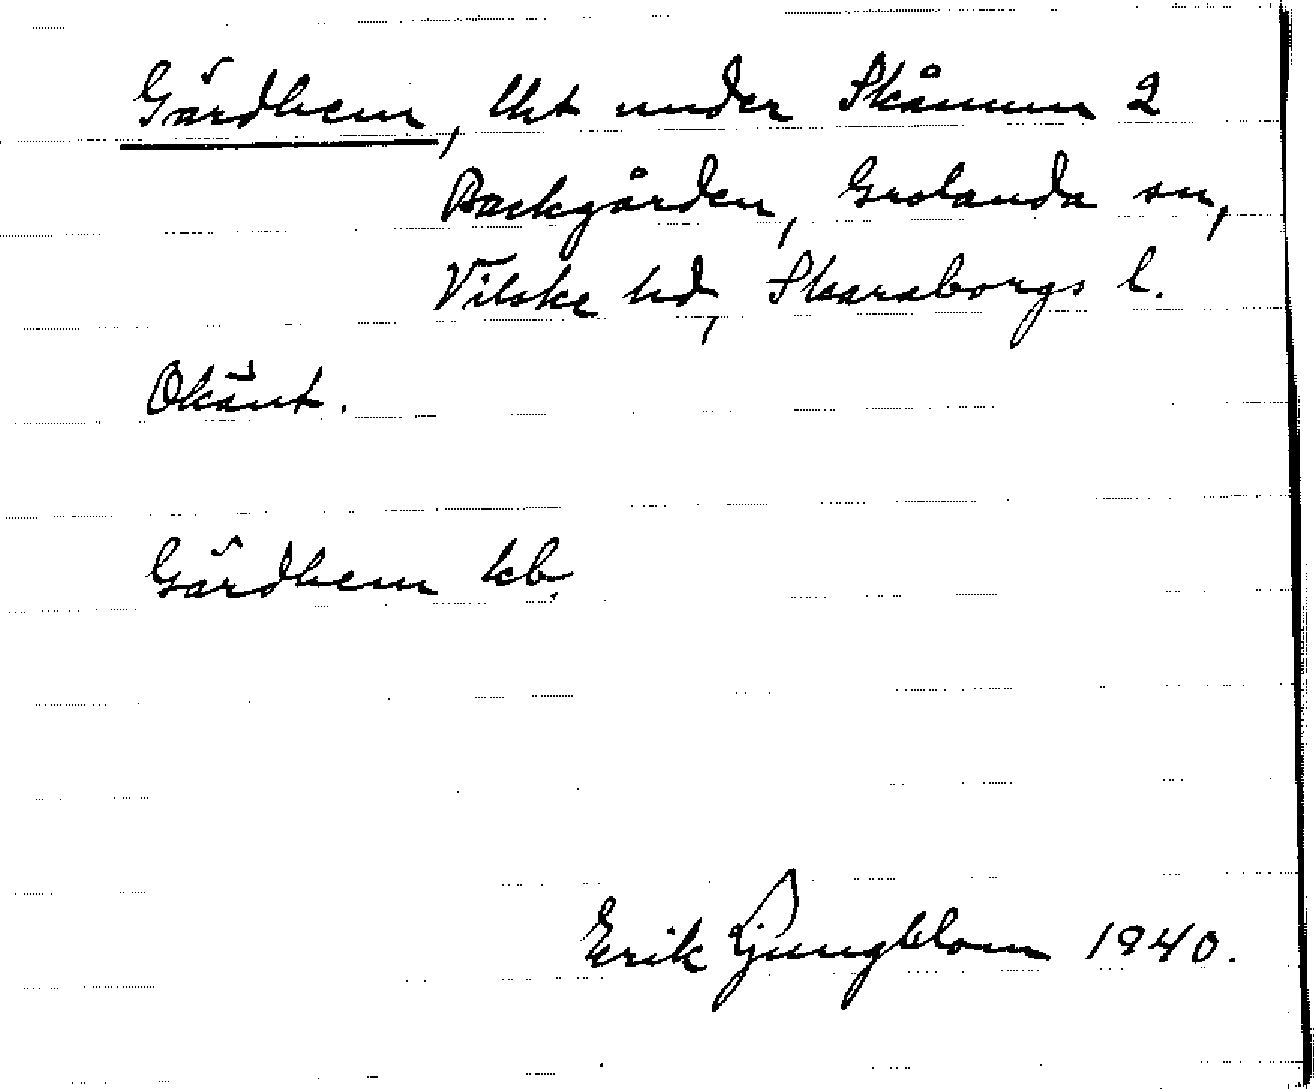 Gärdhem, lht under Skånum 2
Backgården, Grolanda sn,
Vilske hd, Skaraborgs l.
Okänt.
Gärdhem kb.
Erik Ljungblom 1940.